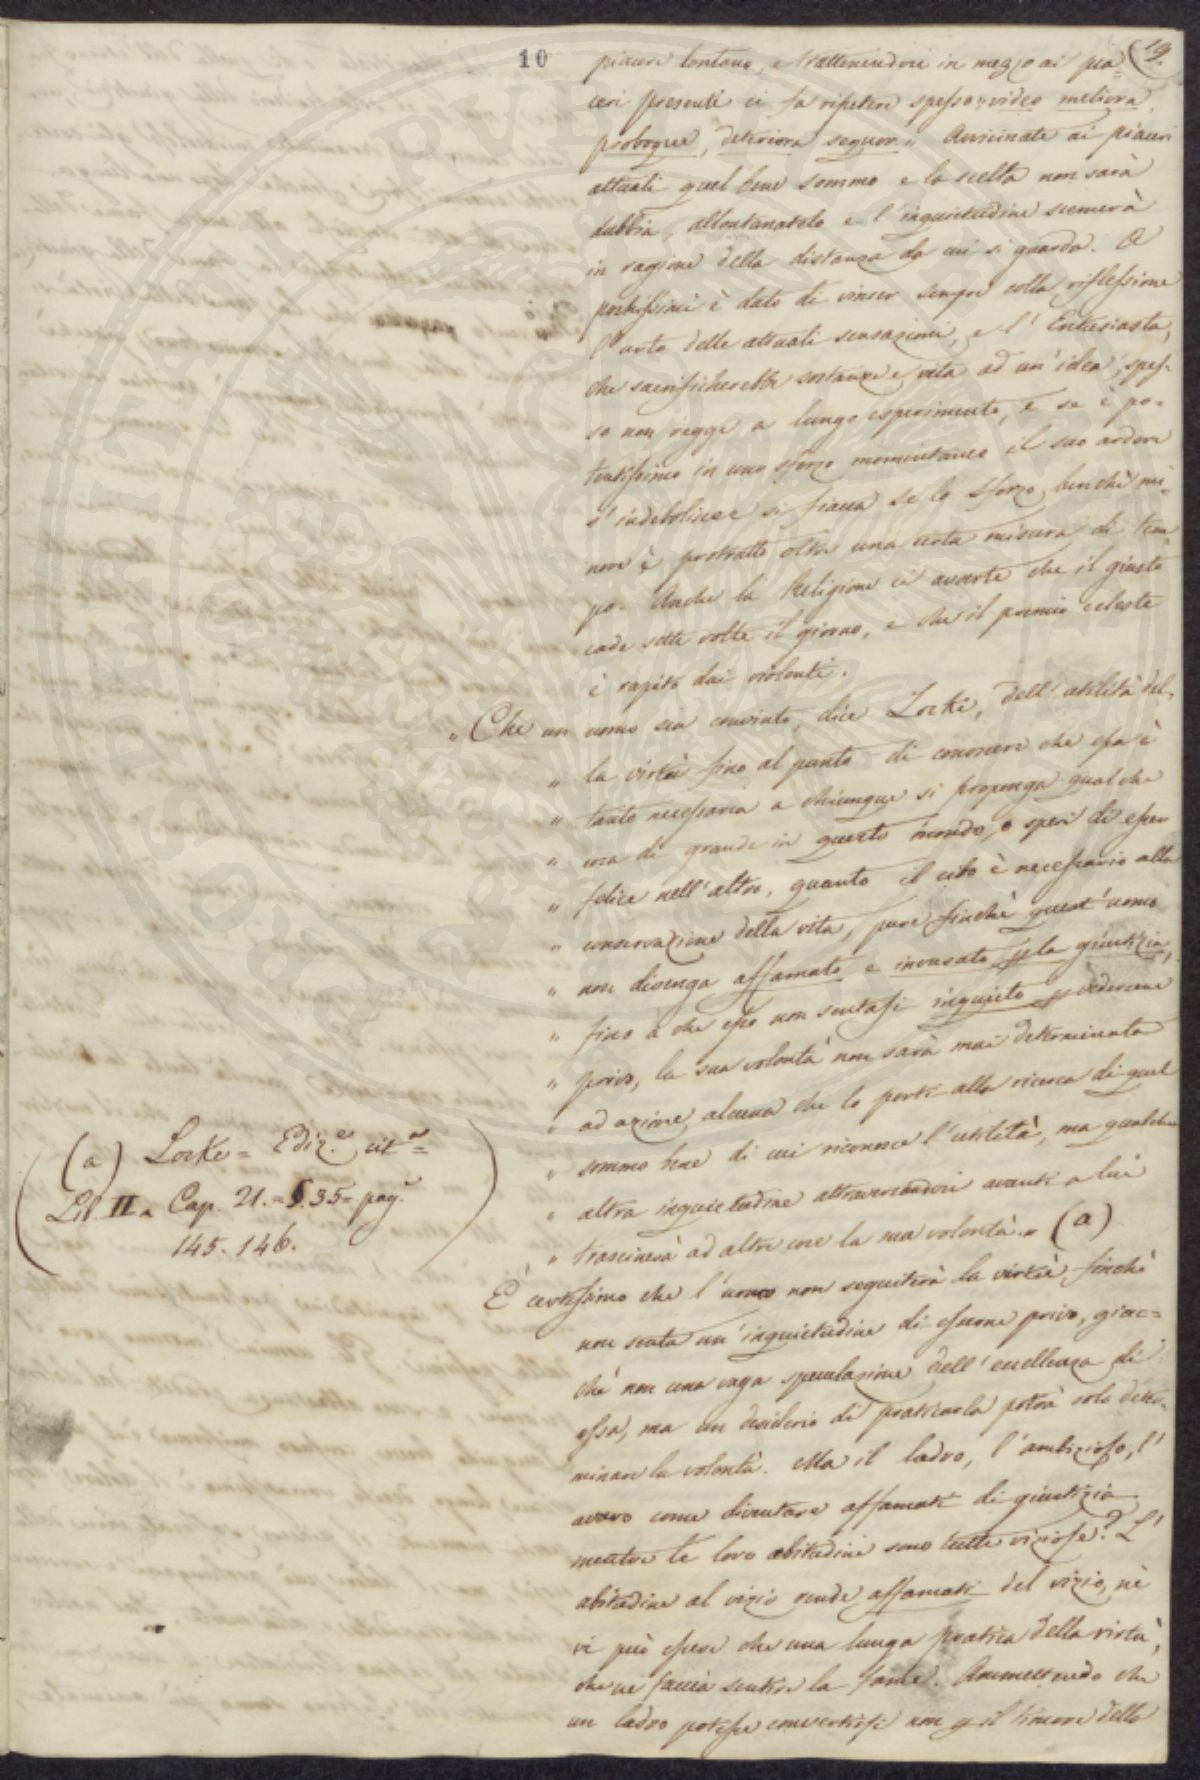 10
19.
piacere lontano, e trattenendoci in mezzo ai pia=
ceri presenti ci fa ripetere spesso „ video meliora
proboque, deteriora sequor „ Avvicinate ai piaceri
attuali quel bene sommo e la scelta non sarà
dubbia, allontanatelo e l'inquietudine scemerà
in ragione della distanza da cui si guarda. A
pochissimi è dato di vincer sempre colla riflessione
l'urto delle attuali sensazioni, e l'Entusiasta,
che sacrificherebbe sostanze e vita ad un'idea, spes-
so non regge a lungo esperimento, e se è po-
tentissimo in uno sforzo momentaneo il suo ardore
s'indebolisce e si fiacca se lo sforzo, benchè mi-
nore è protratto oltre una certa misura di tem-
po. Anche la Religione ci avverte che il giusto
cade sette volte il giorno, e che il premio celeste
è rapito dai violenti.
„ Che un uomo sia convinto, dice Locke, dell'utilità del-
„ la virtù fino al punto di conoscere che essa è
„ tanto necessaria a chiunque si proponga qualche
„ cosa di grande in questo mondo, o speri di esser
„ felice nell'altro, quanto il cibo è necessario alla
„ conservazione della vita, pure finchè quest'uomo
„ non divenga affamato e assetato della giustizia,
„ fino a che esso non sentasi inquieto p vedersene
„ privo, la sua volontà non sarà mai determinata
„ ad azione alcuna che lo porti alla ricerca di quel
„ sommo bene di cui riconosce l'utilità, ma qualche
„ altra inquietudine attraversandosi avanti a lui
„ trascinerà ad altre cose la sua volontà. „ (a)
(a) Locke = Ediz.e cit.a =
Lib. II. Cap. 21. = §. 35 = pag.
145. 146.
È certissimo che l'uomo non seguiterà la virtù finchè
non senta un'inquietudine di esserne privo, giac=
chè non una vaga speculazione dell'eccellenza di
essa, ma un desiderio di praticarla potrà solo deter-
minare la volontà. Ma il ladro, l'ambizioso, l'
avaro come diventare affamati di giustizia
mentre le loro abitudini sono tutte viziose? L'
abitudine al vizio rende affamati del vizio, nè
vi può essere che una lunga pratica della virtù,
che ne faccia sentire la fame. Ammettendo che
un ladro potesse convertirsi non p il timore della